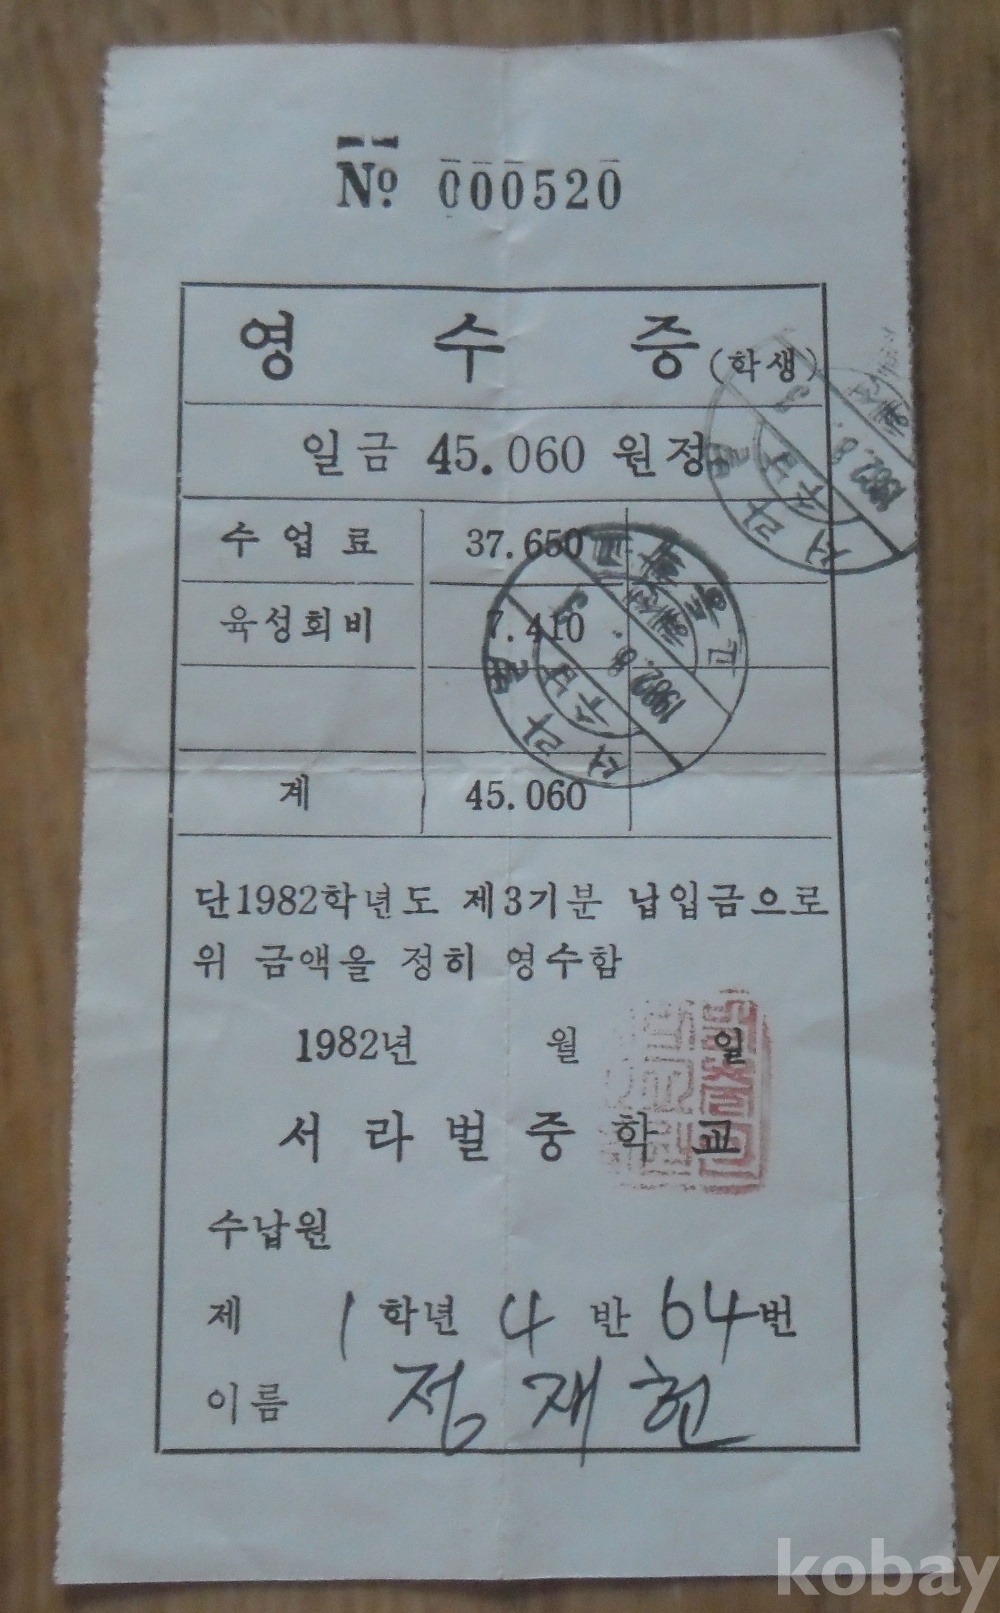 No. 000520
영 수 증 (학생)
일금 45.060 원정
수업료 37.650
육성회비 7.410
계 45.060
서라벌 중학교
1982. 8.
단1982학년도 제3기분 납입금으로
위 금액을 정히 영수함
1982년 월 일
서 라 벌 중 학 교
수납원
제 1 학년 4 반 64 번
이름 정재헌
kobay